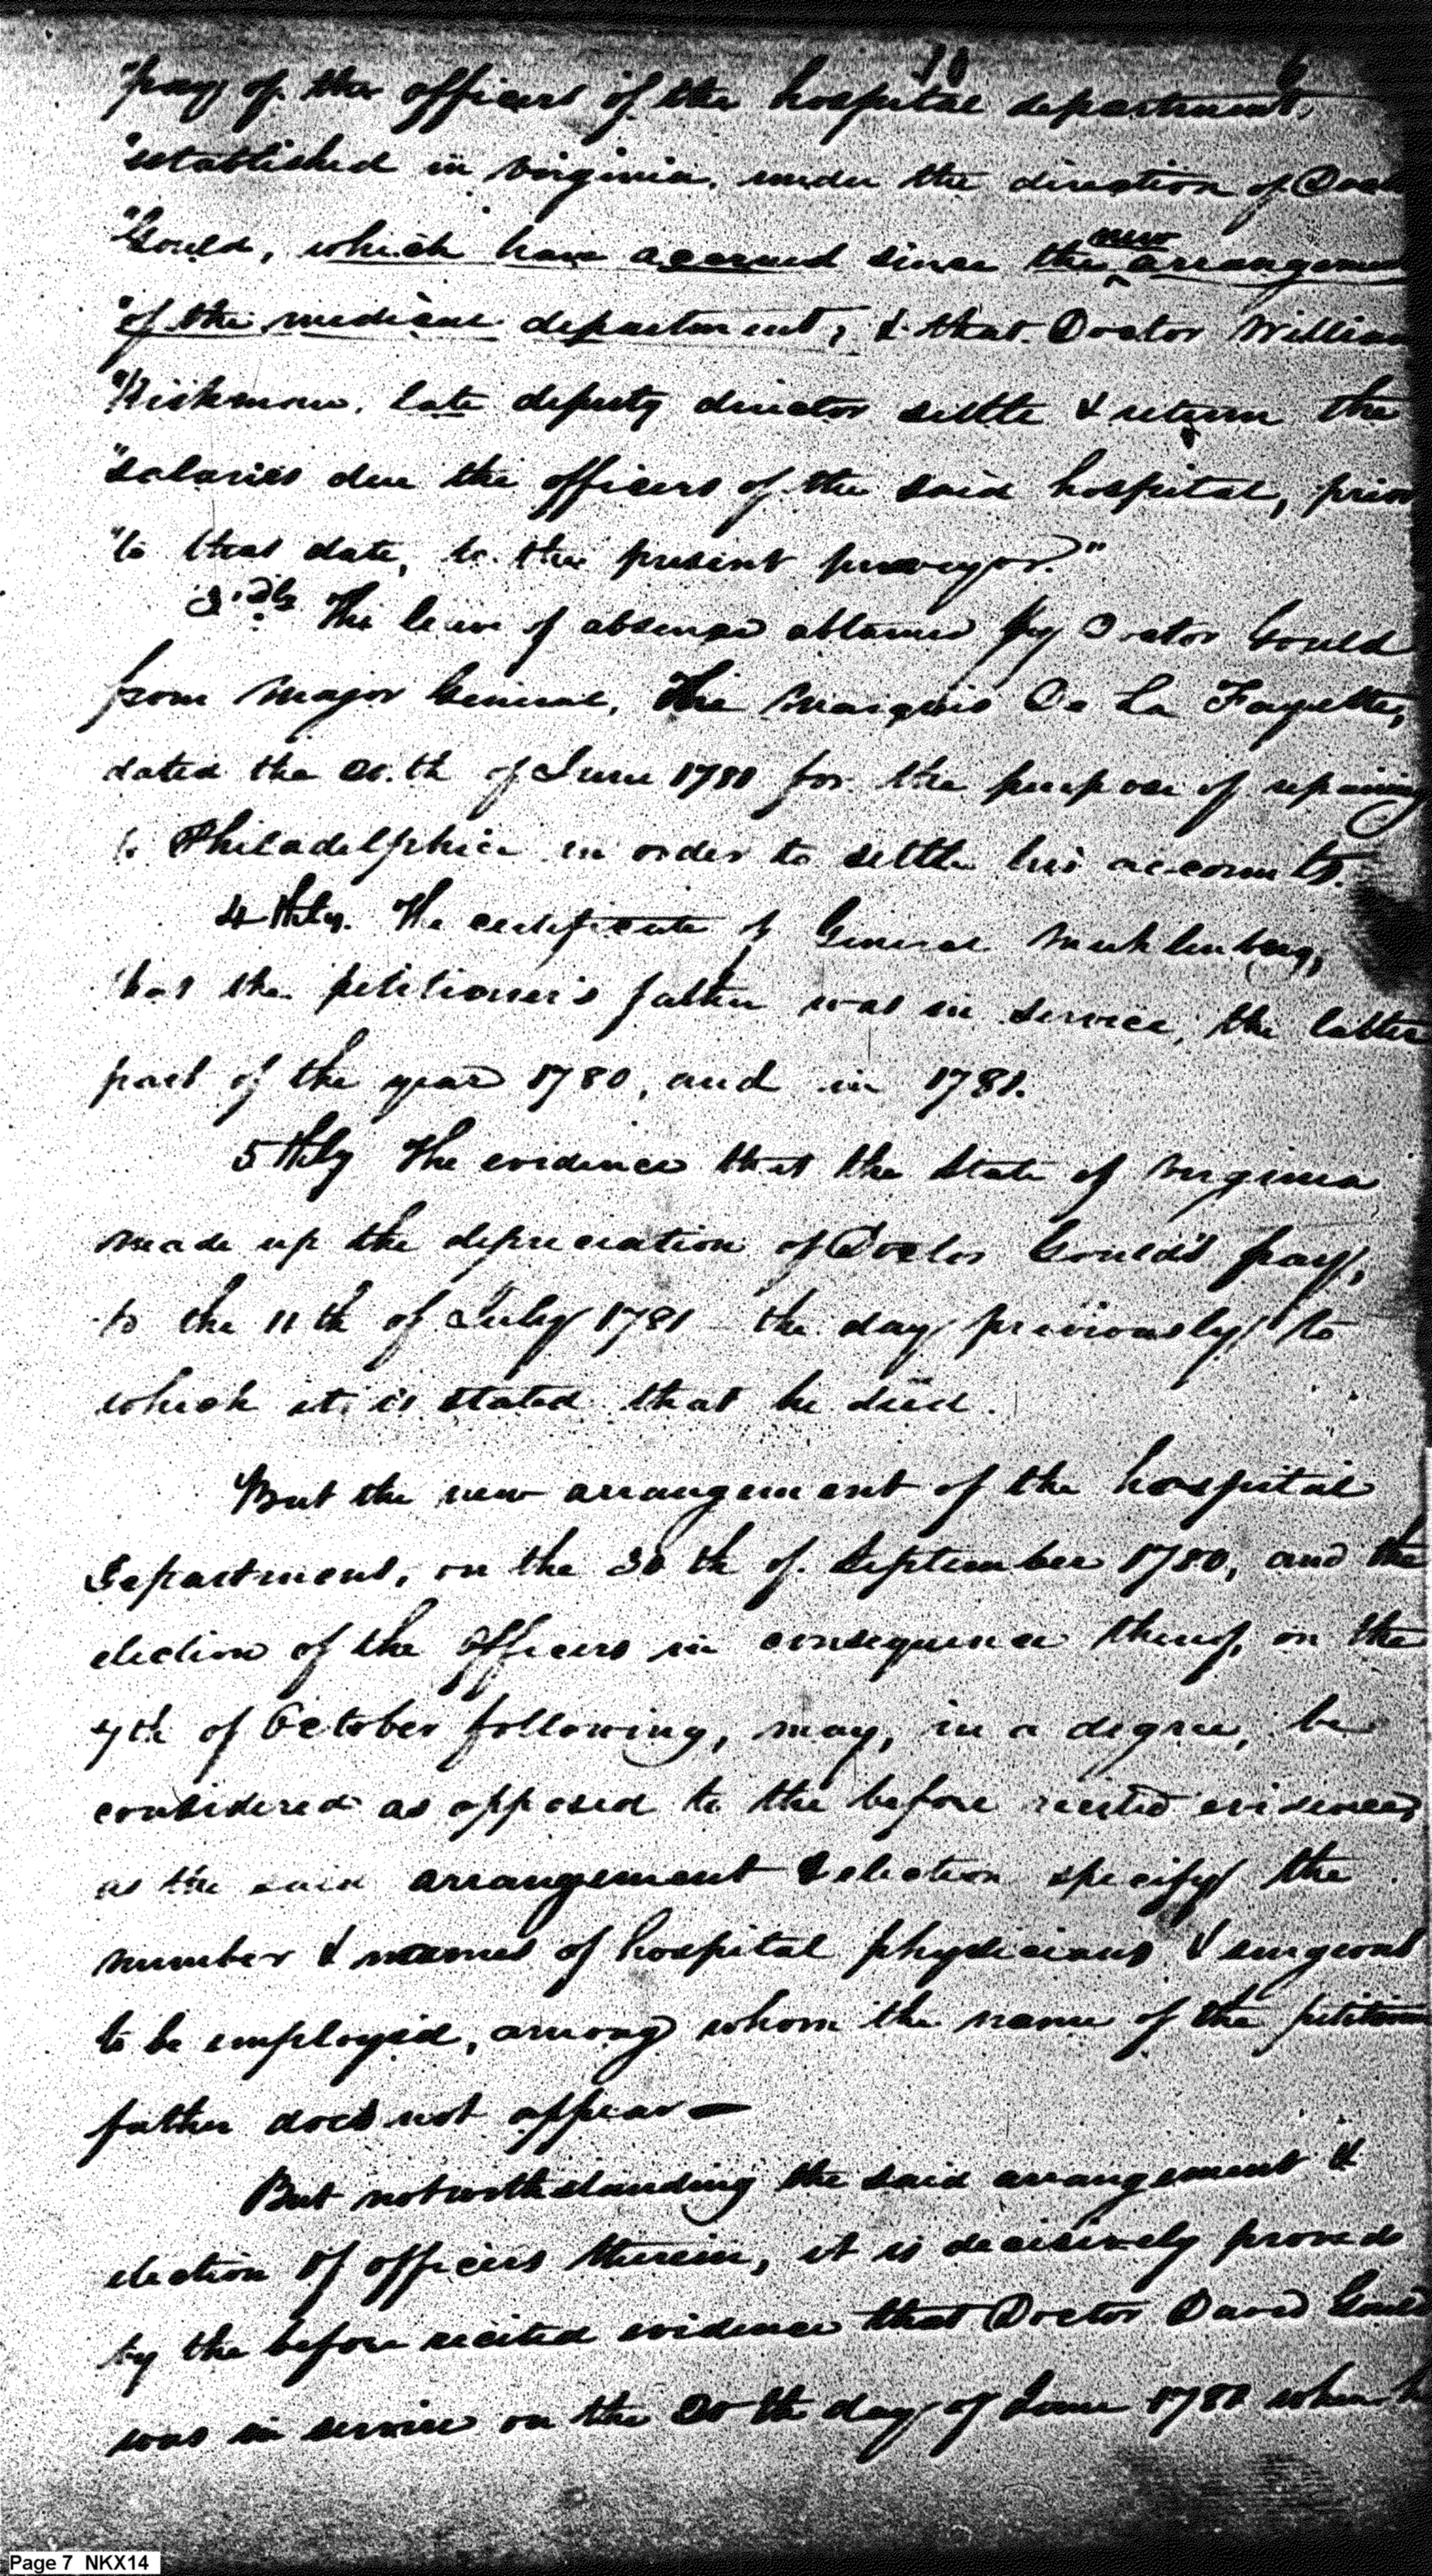 10 6
"pay of the officers of the hospital department,
"established in Virginia, under the direction of Doct
"Gould, which have accrued since the new arrangement
"of the medical department; & that Doctor William
"Rickman, late deputy director settle & return the
"salaries due the officers of the said hospital, prior
"to that date, to the present purveyor."
3.dly The leave of absence obtained by Doctor Gould
from Major General, The Marquis De La Fayette,
dated the 20.th of June 1781 for the purpose of repairing
to Philadelphia in order to settle his accounts.
4thly. The certificate of General Muhlenberg,
that the petitioner's father was in service, the latter
part of the year 1780, and in 1781.
5thly The evidence that the State of Virginia
made up the depreciation of Doctor Gould's pay,
to the 11th of July 1781 – the day previously to
which it is stated that he died.
But the new arrangement of the hospital
department, on the 30th of September 1780, and the
election of the officers in consequence thereof, on the
7th of October following, may, in a degree, be
considered as opposed to the before recited evidences
as the said arrangement & election specify the
number & names of hospital physicians & surgeons
to be employed, among whom the name of the petitioner
father does not appear —
But notwithstanding the said arrangement &
election of officers therein, it is decisively proved
by the before recited evidence that Doctor David Gould
was in service on the 20th day of June 1781 when he
Page 7 NKX14